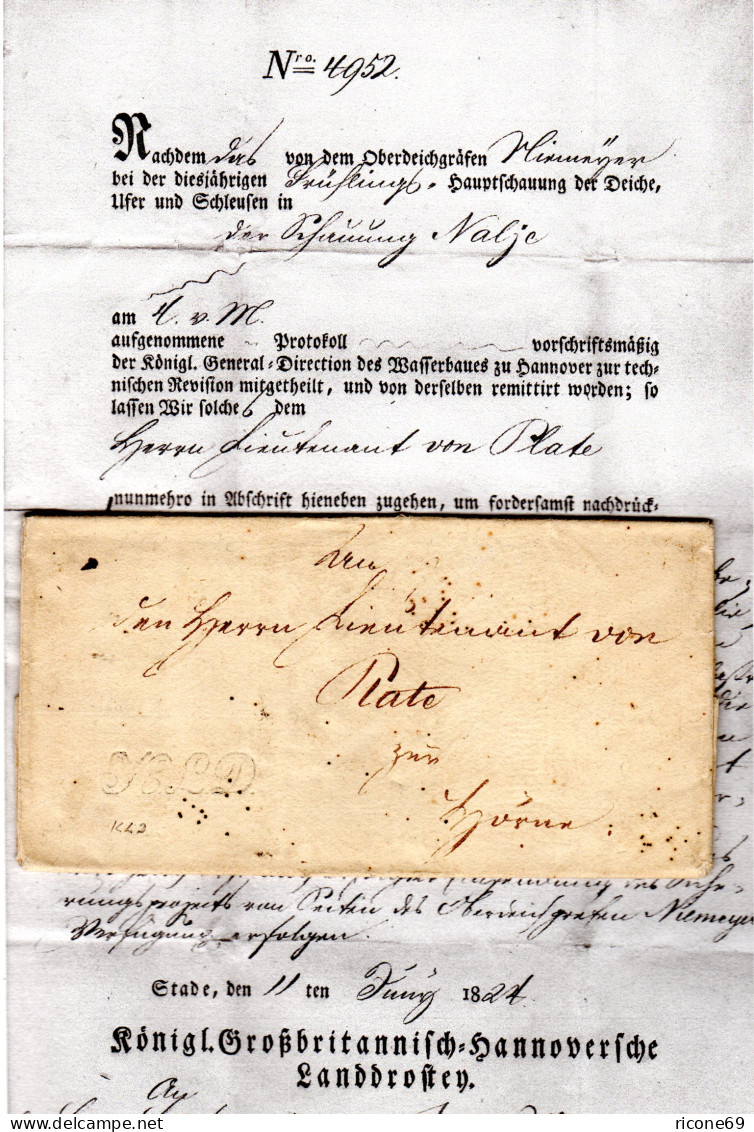 Nro. 4952.
Nachdem das von dem Oberdeichgräfen Niemeyer
bei der diesjährigen Frühlings- Hauptschauung der Deiche,
Ufer und Schleusen in
der Schauung Nalje
am 4. v. M.
aufgenommene Protokoll vorschriftsmäßig
der Königl. General-Direction des Wasserbaues zu Hannover zur tech-
nischen Revision mitgetheilt, und von derselben remittirt worden; so
lassen Wir solches dem
Herrn Lieutenant von Plate
nunmehro in Abschrift hieneben zugehen, um fordersamst nachdrück-
An
den Herrn Lieutenant von
Plate
zur
Hörne.
K.L.D.
KLD
rungsprojects von Seiten des Oberdeichgrefen Niemeyer
Verfügung erfolgen.
Stade, den 11 ten Juny 1824.
Königl. Großbritannisch-Hannoversche
Landdrostey.
An
ricone69